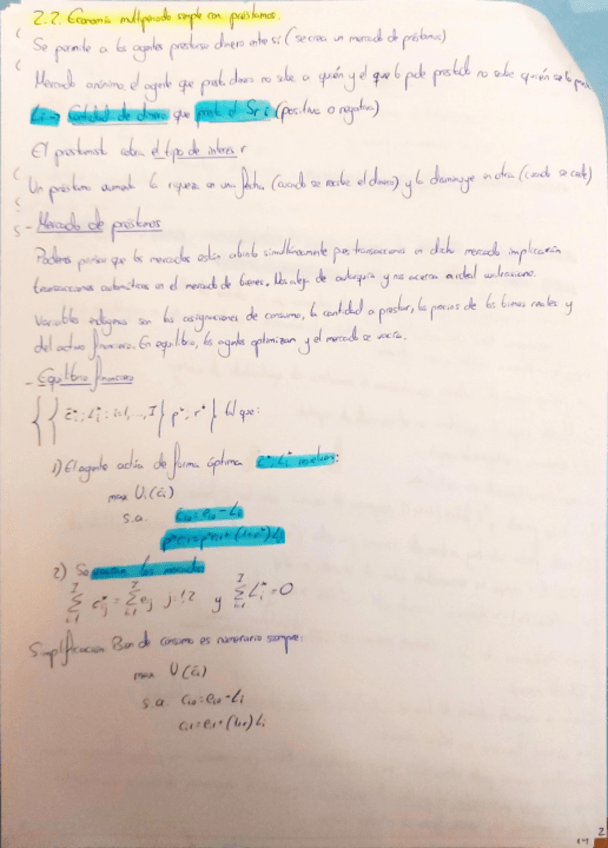 2.2. Economía multiperiodo simple con préstamos.
Se permite a los agentes prestarse dinero entre sí (se crea un mercado de préstamos)
Mercado anónimo, el agente que presta dinero no sabe a quién y el que lo pide prestado no sabe quién se lo presta
Li → Cantidad de dinero que presta el Sr i (positiva o negativa)
El prestamista cobra el tipo de interés r
Un préstamo aumenta la riqueza en una fecha (cuando se recibe el dinero) y la disminuye en otra (cuando se cede)
- Mercado de préstamos
Podemos pensar que los mercados están abiertos simultáneamente pues transacciones en dicho mercado implicarán
transacciones automáticas en el mercado de bienes. Nos aleja de autarquía y nos acerca a
Variables endógenas son las asignaciones de consumo, la cantidad a prestar, los precios de los bienes reales y
del activo financiero. En equilibrio, los agentes optimizan y el mercado se vacía.
- Equilibrio financiero
{ { c̄i*, Li* : i=1, ..., I } p*, r* } tal que:
1) El agente actúa de forma óptima c̄i*, Li* resuelven:
max Ui(c̄i)
s.a. ci0 = ei0 - Li
p*ci1 = p*ei1 + (1+r*)Li
2) Se vacían los mercados
∑ cij* = ∑ eij j=1,2 y ∑ Li* = 0
Simplificación Bien de consumo es numerario siempre:
max U(c̄i)
s.a. ci0 = ei0 - Li
ci1 = ei1 + (1+r)Li
2